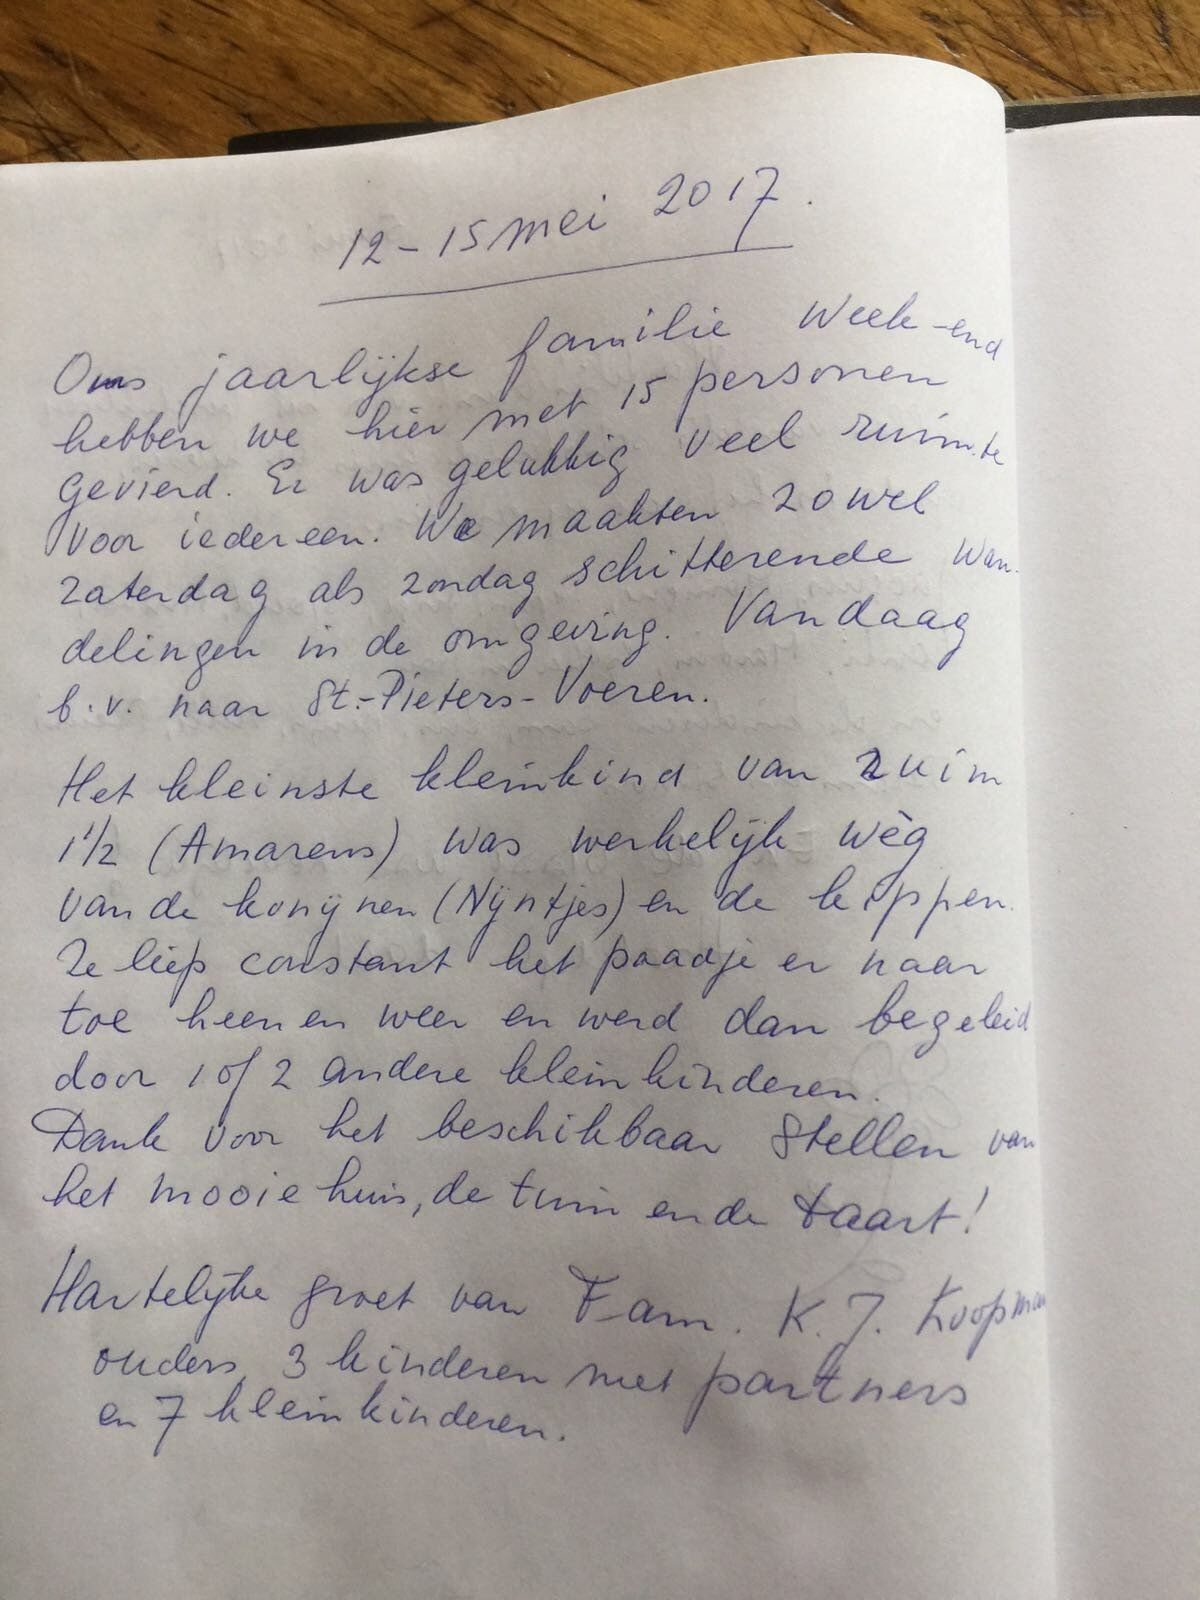 12-15 mei 2017.
Ons jaarlijkse familie Week-end
hebben we hier met 15 personen
gevierd. Er was gelukkig veel ruimte
voor iedereen. We maakten zowel
zaterdag als zondag schitterende wan-
delingen in de omgeving. Vandaag
b.v. naar St.-Pieters-Voeren.
Het kleinste kleinkind van ruim
1 1/2 (Amarens) was werkelijk wèg
van de konijnen (Nijntjes) en de kippen.
Ze liep constant het paadje er naar
toe heen en weer en werd dan begeleid
door 1 of 2 andere kleinkinderen.
Dank voor het beschikbaar stellen van
het mooie huis, de tuin en de taart!
Hartelijke groet van Fam. K. J. Koopman
ouders, 3 kinderen met partners
en 7 kleinkinderen.